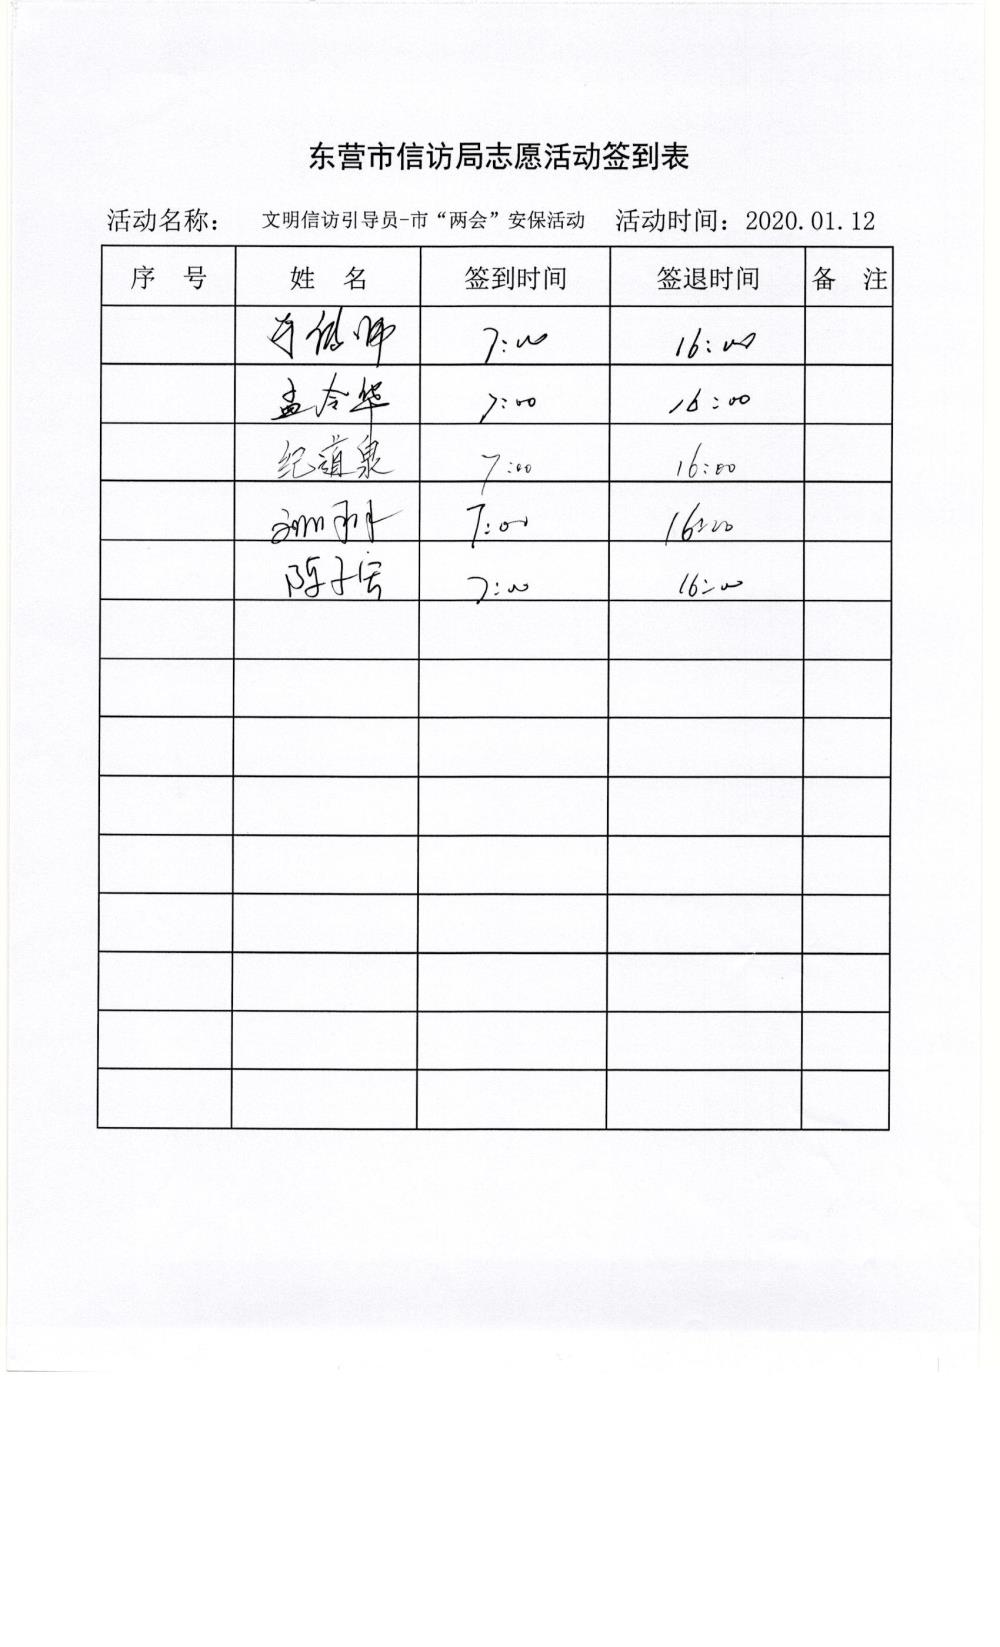 东营市信访局志愿活动签到表
活动名称： 文明信访引导员-市“两会”安保活动 活动时间：2020.01.12
序 号 姓 名 签到时间 签退时间 备 注
7:00 16:00
孟令华 7:00 16:00
纪道泉 7:00 16:00
7:00 16:00
陈子宏 7:00 16:00